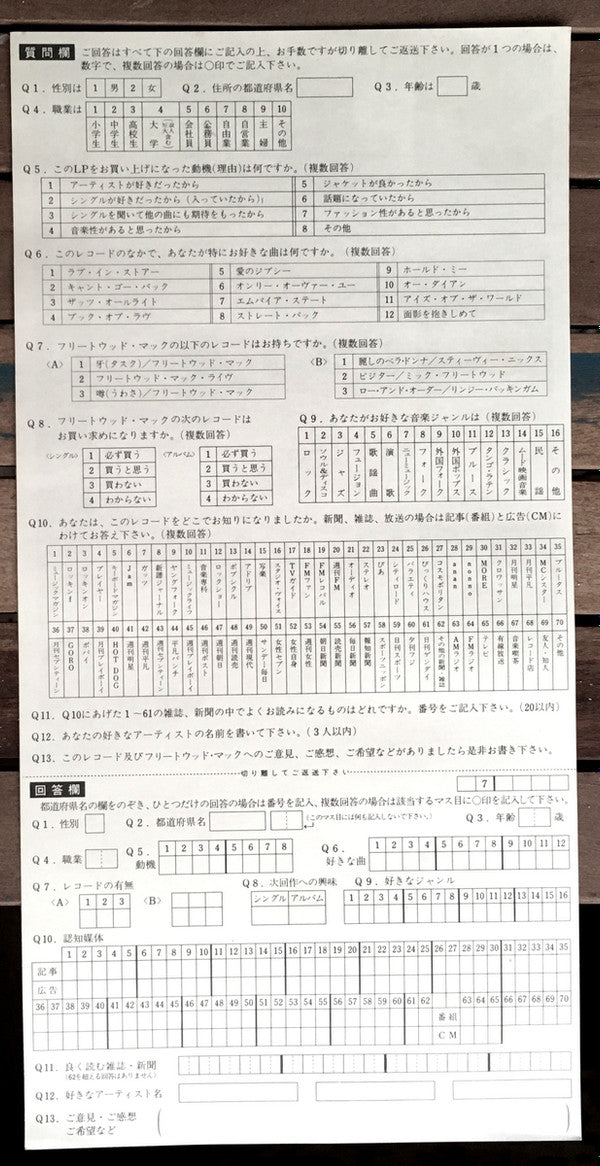 質問欄 ご回答はすべて下の回答欄にご記入の上、お手数ですが切り離してご返送下さい。回答が1つの場合は、
数字で、複数回答の場合は○印でご記入下さい。
Q1．性別は 1 男 2 女 Q2．住所の都道府県名 Q3．年齢は 歳
Q4．職業は 1 2 3 4 5 6 7 8 9 10
小学生 中学生 高校生 大学 会社員 公務員 自由業 自営業 主婦 その他
Q5．このLPをお買い上げになった動機(理由)は何ですか。(複数回答)
1 アーティストが好きだったから 5 ジャケットが良かったから
2 シングルが好きだったから (入っていたから) 6 話題になっていたから
3 シングルを聞いて他の曲にも期待をもったから 7 ファッション性があると思ったから
4 音楽性があると思ったから 8 その他
Q6．このレコードのなかで、あなたが特にお好きな曲は何ですか。(複数回答)
1 ラブ・イン・ストアー 5 愛のジプシー 9 ホールド・ミー
2 キャント・ゴー・バック 6 オンリー・オーヴァー・ユー 10 オー・ダイアン
3 ザッツ・オールライト 7 エムパイア・ステート 11 アイズ・オブ・ザ・ワールド
4 ブック・オブ・ラヴ 8 ストレート・バック 12 面影を抱きしめて
Q7．フリートウッド・マックの以下のレコードはお持ちですか。(複数回答)
〈A〉 1 牙(タスク)／フリートウッド・マック 〈B〉 1 麗しのベラ・ドンナ／スティーヴィー・ニックス
2 フリートウッド・マック・ライヴ 2 ビジター／ミック・フリートウッド
3 噂(うわさ)／フリートウッド・マック 3 ロー・アンド・オーダー／リンジー・バッキンガム
Q8．フリートウッド・マックの次のレコードは
お買い求めになりますか。(複数回答)
〈シングル〉 1 必ず買う 〈アルバム〉 1 必ず買う
2 買うと思う 2 買うと思う
3 買わない 3 買わない
4 わからない 4 わからない
Q9．あなたがお好きな音楽ジャンルは (複数回答)
1 2 3 4 5 6 7 8 9 10 11 12 13 14 15 16
ロック ソウル&ディスコ ジャズ フュージョン 歌謡曲 演歌 ニューミュージック フォーク 外国フォーク 外国ポップス ブルース タンゴ・ラテン クラシック ムード・映画音楽 民謡 その他
Q10．あなたは、このレコードをどこでお知りになりましたか。新聞、雑誌、放送の場合は記事(番組)と広告(CM)に
わけてお答え下さい。(複数回答)
1 2 3 4 5 6 7 8 9 10 11 12 13 14 15 16 17 18 19 20 21 22 23 24 25 26 27 28 29 30 31 32 33 34 35
ミュージックマガジン ロッキンf ロッキンオン プレイヤー キーボードマガジン Jam ガッツ 新譜ジャーナル ヤングフォーク ミュージックライフ 音楽専科 ロックショー ポプシクル アドリブ 写楽 スタジオ・ヴォイス TVガイド FMファン FMレコパル 週刊FM オーディオ ステレオ ぴあ シティロード バラエティ びっくりハウス コスモポリタン anan nonno MORE クロワッサン 月刊明星 月刊平凡 MCシスター ブルータス
36 37 38 39 40 41 42 43 44 45 46 47 48 49 50 51 52 53 54 55 56 57 58 59 60 61 62 63 64 65 66 67 68 69 70
月刊セブンティーン GORO ポパイ 月刊プレイボーイ HOT DOG 週刊明星 週刊平凡 週刊セブンティーン 平凡パンチ 週刊プレイボーイ 週刊ポスト 週刊朝日 週刊読売 週刊現代 サンデー毎日 女性セブン 女性自身 週刊女性 朝日新聞 読売新聞 毎日新聞 報知新聞 スポーツニッポン 日刊スポーツ 夕刊フジ 日刊ゲンダイ その他の新聞・雑誌 AMラジオ FMラジオ テレビ 有線放送 音楽喫茶 レコード店 友人・知人 その他
Q11．Q10にあげた1～61の雑誌、新聞の中でよくお読みになるものはどれですか。番号をご記入下さい。(20以内)
Q12．あなたの好きなアーティストの名前を書いて下さい。(3人以内)
Q13．このレコード及びフリートウッド・マックへのご意見、ご感想、ご希望などがありましたら是非お書き下さい。
切り離してご返送下さい
回答欄 7
都道府県名の欄をのぞき、ひとつだけの回答の場合は番号を記入、複数回答の場合は該当するマス目に○印を記入して下さい。
Q1．性別 Q2．都道府県名 (このマス目には何も記入しないで下さい。) Q3．年齢 歳
Q4．職業 Q5．動機 1 2 3 4 5 6 7 8 Q6．好きな曲 1 2 3 4 5 6 7 8 9 10 11 12
Q7．レコードの有無 Q8．次回作への興味 Q9．好きなジャンル
〈A〉 1 2 3 〈B〉 シングル アルバム 1 2 3 4 5 6 7 8 9 10 11 12 13 14 15 16
Q10．認知媒体
1 2 3 4 5 6 7 8 9 10 11 12 13 14 15 16 17 18 19 20 21 22 23 24 25 26 27 28 29 30 31 32 33 34 35
記事
広告
36 37 38 39 40 41 42 43 44 45 46 47 48 49 50 51 52 53 54 55 56 57 58 59 60 61 62 63 64 65 66 67 68 69 70
番組
CM
Q11．良く読む雑誌・新聞
(62を超える回答はありません)
Q12．好きなアーティスト名
Q13．ご意見・ご感想
ご希望など